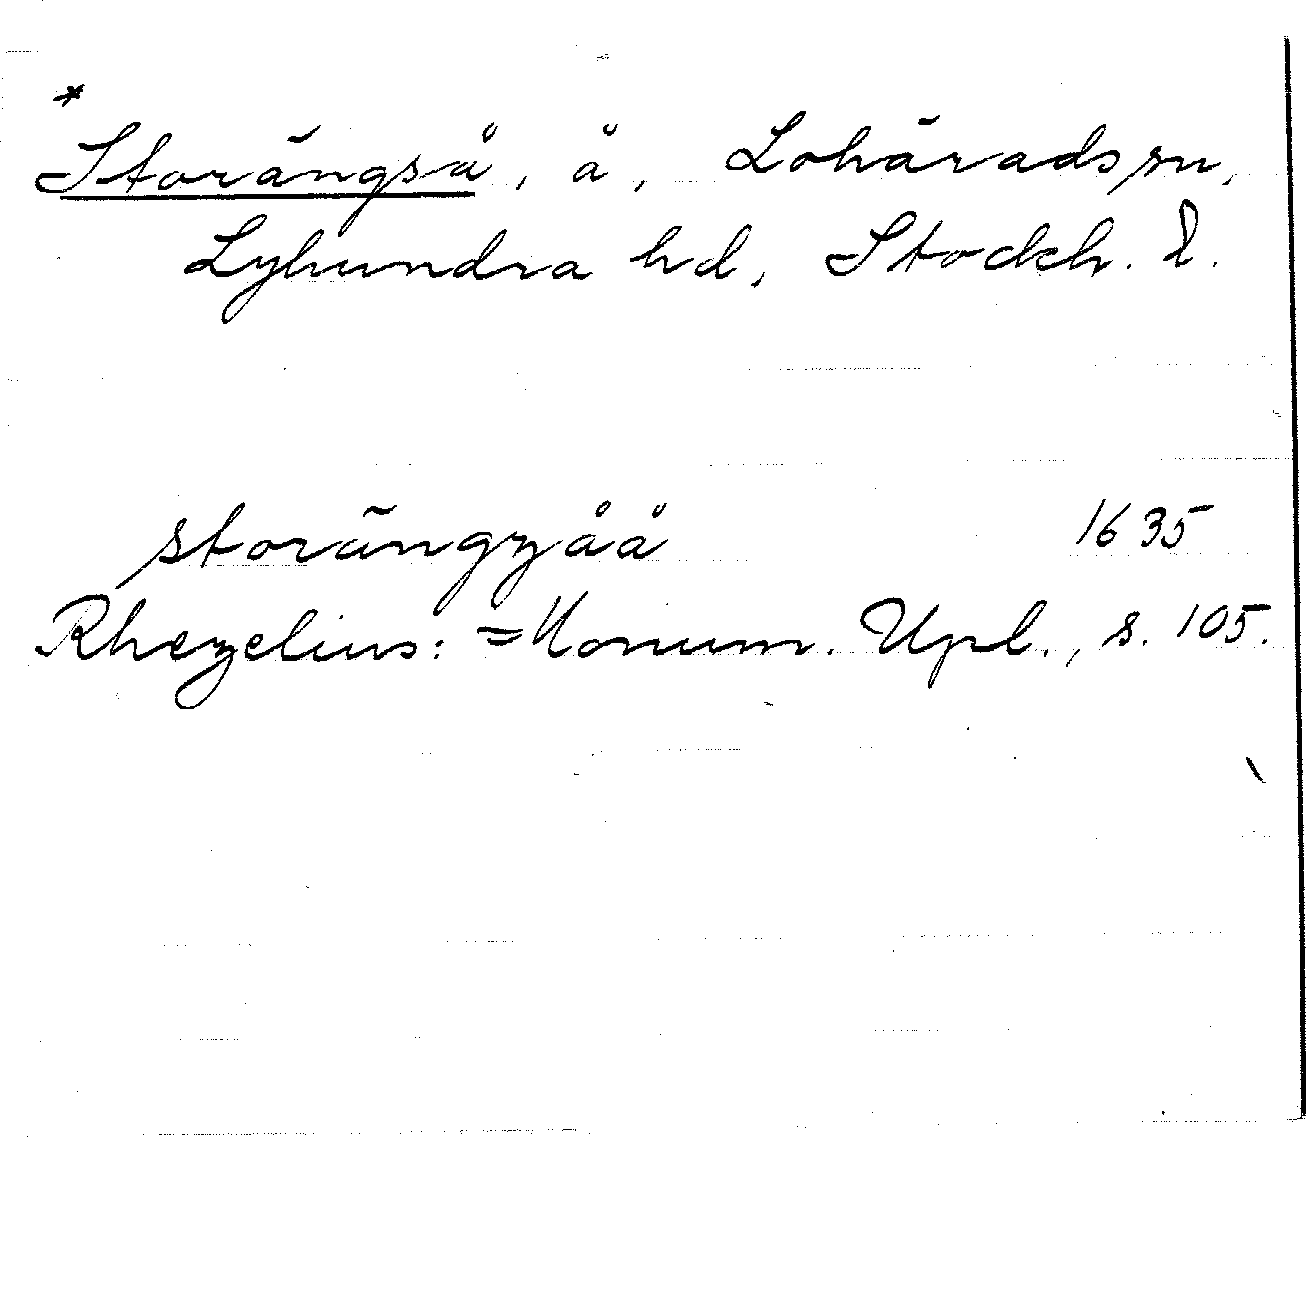 *
Storängså, å, Lohärads sn,
Lyhundra hd, Stockh. l.
storängzåå 1635
Rhezelius: Monum. Upl., s. 105.